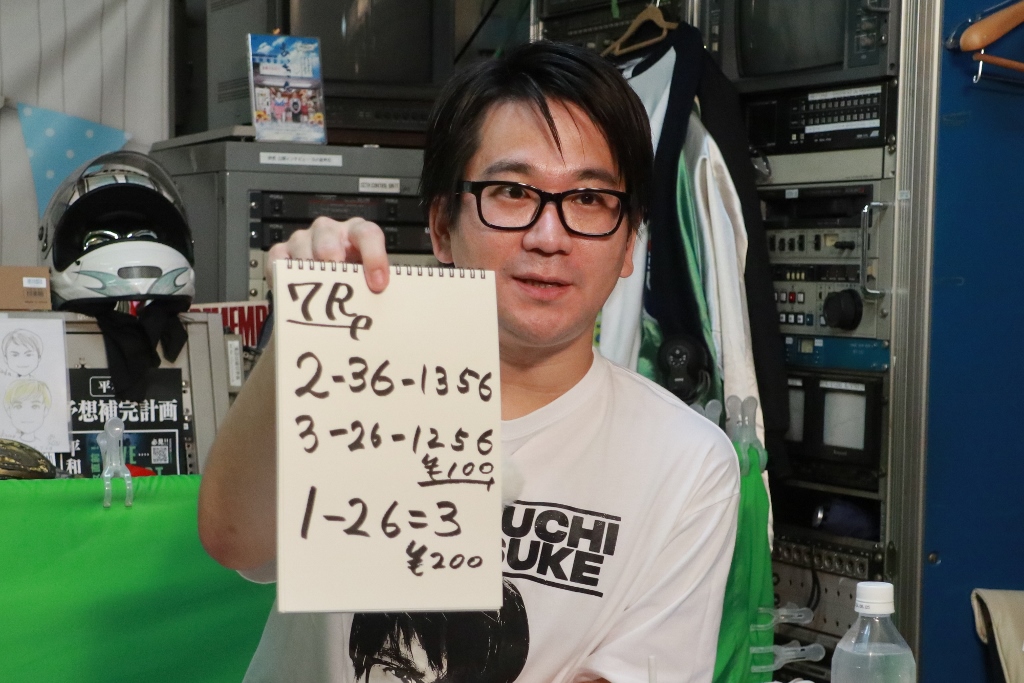 7R
2-36-1356
3-26-1256
¥100
1-26=3
¥200
UCHI
UKE
予想補完計画